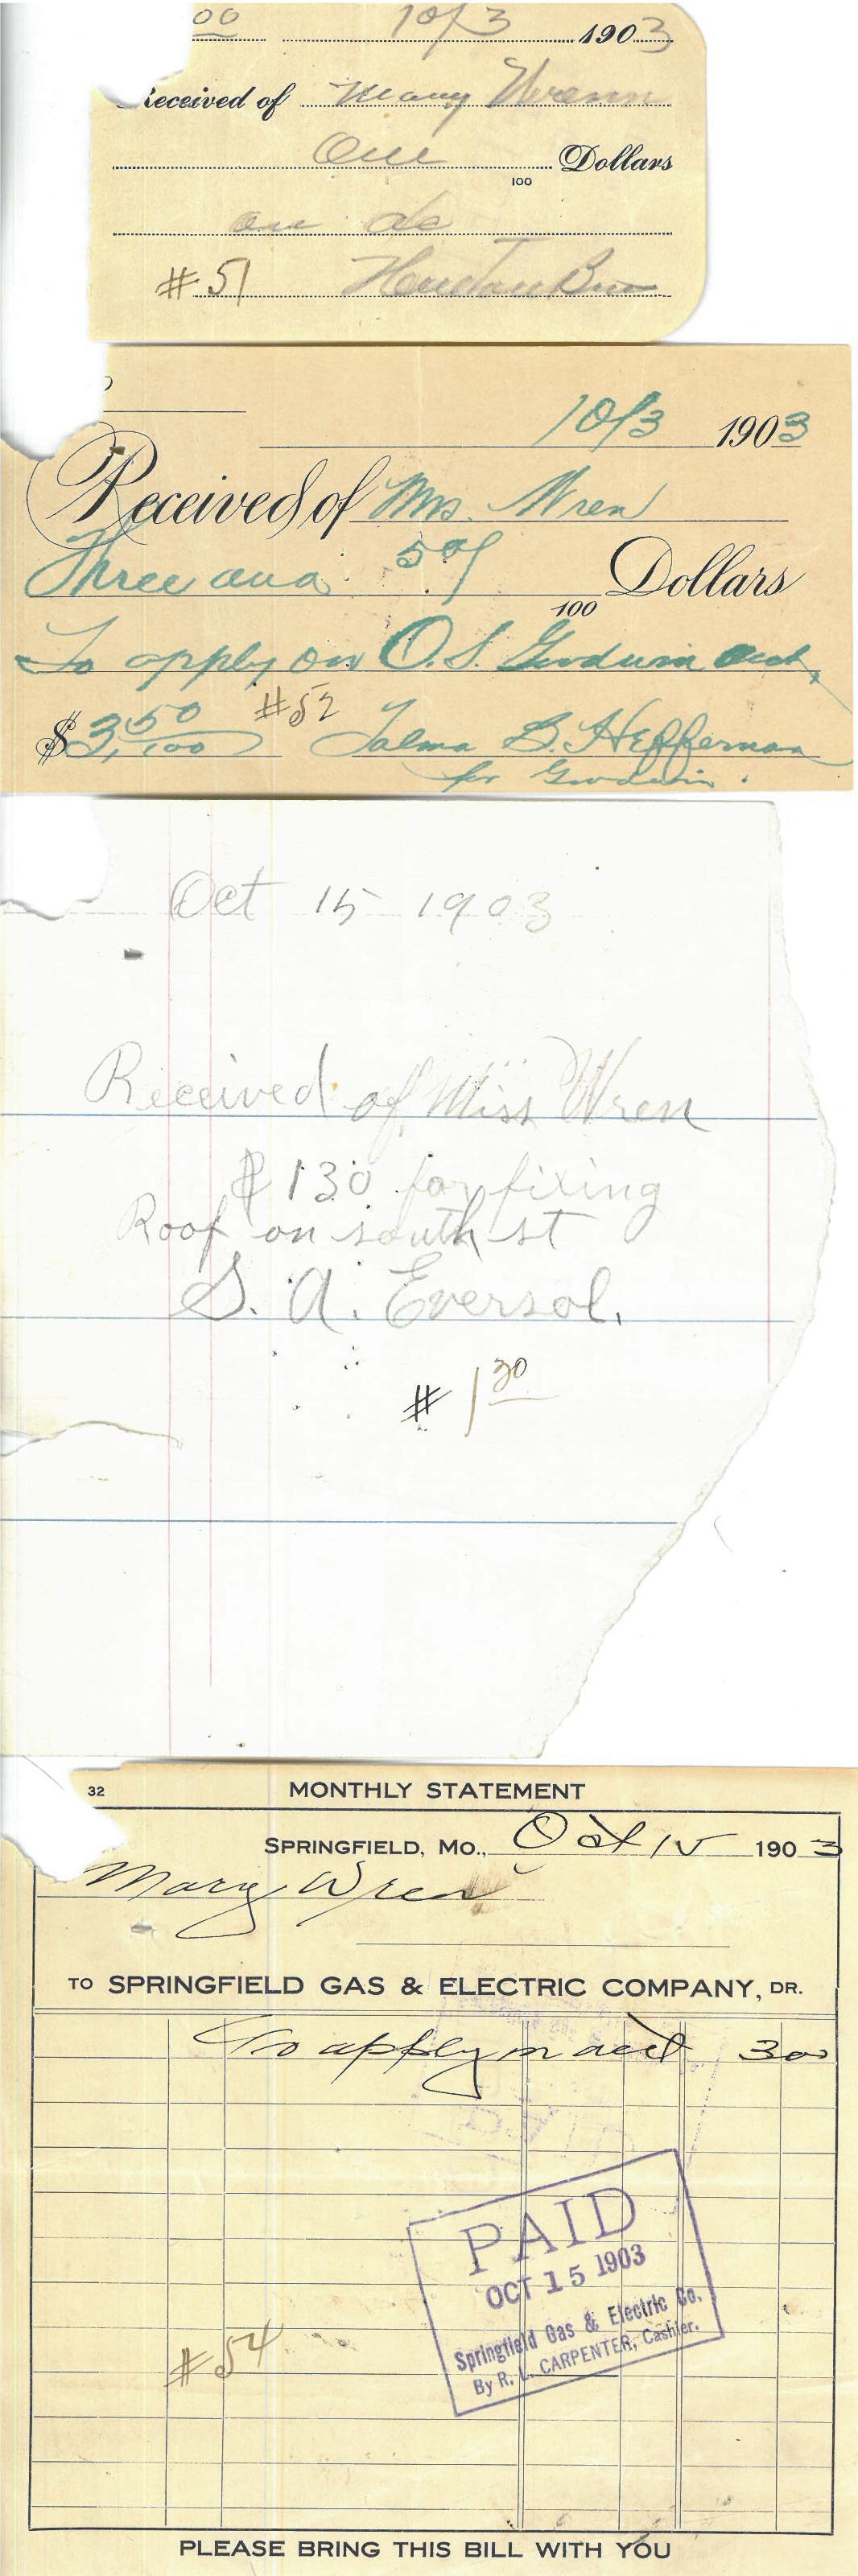 00 10/3 1903
Received of Mary Wrenn
One Dollars
100
on ac
#51
10/3 1903
Received of Mrs. Wren
Three and 50/ Dollars
100
To apply on O.S. Goodwin acct,
$3,50/100 #52 Talma B. Heffernan
for Goodwin.
Oct 15 1903
Received of Miss Wren
$130 for fixing
Roof on south st
S. A. Eversol.
# 1 30
32 MONTHLY STATEMENT
SPRINGFIELD, MO., Oct 15 1903
Mary Wren
TO SPRINGFIELD GAS & ELECTRIC COMPANY, DR.
To apply on acct 300
PAID
OCT 15 1903
Springfield Gas & Electric Co.
By R. L. CARPENTER, Cashier.
#54
PLEASE BRING THIS BILL WITH YOU